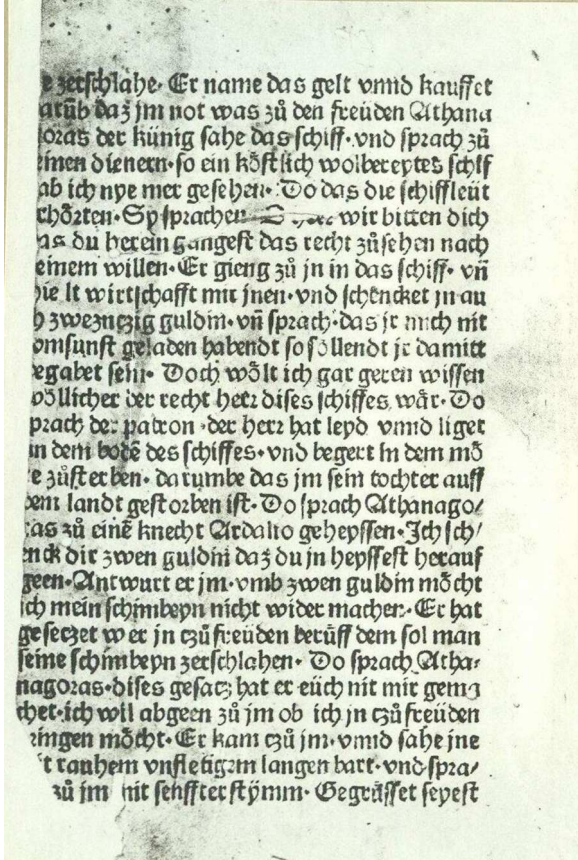 e zerschlahe· Er name das gelt vnnd kauffet
arüb daz jm not was zů den freüden Athana
goras der künig sahe das schiff·vnd sprach zů
einen dienern·so ein köstlich wolbereytes schif
ab ich nye mer gesehen· Do das die schiffleüt
rhörten·Sy sprachen wir bitten dich
as du herein gangest das recht zůsehen nach
einem willen·Er gieng zů jn in das schiff· vñ
hielt wirtschafft mit jnen·vnd schencket jn au
h zweynczig guldin·vñ sprach·das jr mich nit
omsunst geladen habendt so söllendt jr damitt
egabet sein· Doch wölt ich gar geren wissen
wöllicher der recht herr dises schiffes wär·Do
sprach der patron·der herr hat leyd vnnd liget
in dem bodē des schiffes·vnd begert in dem mö
re zůsterben·darumbe das jm sein tochter auff
dem landt gestorben ist·Do sprach Athanago/
ras zů einē knecht Ardalio geheyssen·Ich sch/
enck dir zwen guldin daz du jn heyssest herauf
geen·Antwurt er jm·vmb zwen guldin möcht
ich mein schinbeyn nicht wider machen·Er hat
gesetzet wer jn czůfreüden berüff dem sol man
seine schinbeyn zerschlahen· Do sprach Atha/
nagoras·dises gesatz hat er eüch nit mir gema
chet·ich wil abgeen zů jm ob ich jn czů freüden
ringen möcht·Er kam czů jm·vnnd sahe jne
it rauhem vnfletigem langen bart·vnd spra/
zů jm mit senffter stymm· Gegrüsset seyest